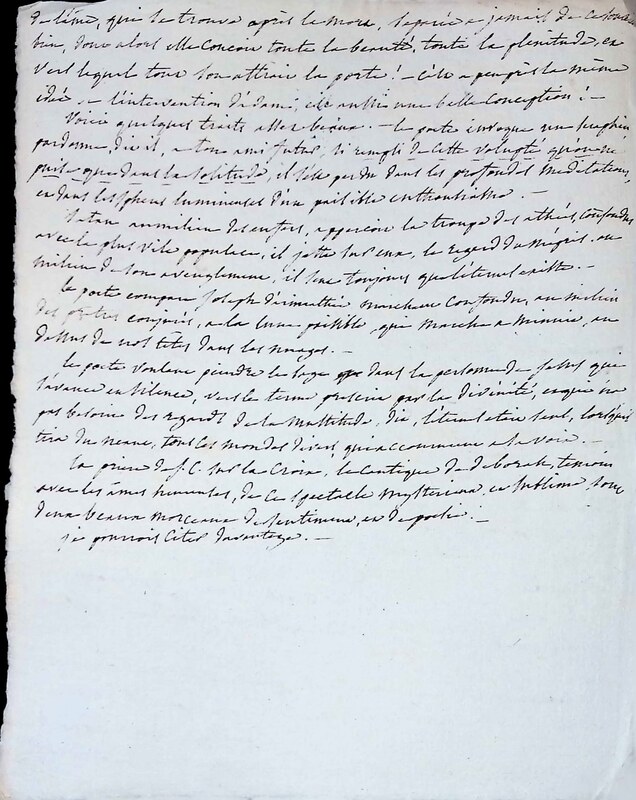 de l'âme, qui se trouve après la mort, séparée à jamais de ce
bien, dont alors elle conçoit toute la beauté, toute la plénitude, et
vers lequel tout son attrait la porte! – c'est à peu près la même
idée. – l'intervention d'adam, est aussi une belle conception! –
Voici quelques traits assez beaux. – le poète invoque un séraphin
pardonne, dit il, à ton ami futur, si rempli de cette volupté qu'on ne
puise que dans la solitude, il s'est perdu dans les profondes méditations,
et dans les sphères lumineuses d'un paisible enthousiasme. –
Satan au milieu des enfers, apperçoit la troupe des athées, confondus
avec la plus vile populace, il jette sur eux, le regard du mépris. au
milieu de son aveuglement, il sent toujours que l'éternel existe. –
le poète compare Joseph d'arimathie marchant confondu, au milieu
des prêtres conjurés, à la lune paisible, qui marche à minuit, au
dessus de nos têtes dans les nuages. –
le poète voulant peindre le sage dans la personne de Jésus qui
s'avance en silence, vers le terme prescrit par la divinité, et qui n'a
pas besoin des regards de la multitude, dit, l'éternel était seul, lorsqu'il
tira du néant, tous les mondes divers qui accoururent à sa voix. –
la prière de J. C. sur la Croix, le cantique de déborah, témoin
avec les âmes humaines, de ce spectacle mystérieux, et sublime, sont
deux beaux morceaux de sentiment, et de poësie. –
je pourrois citer davantage. –